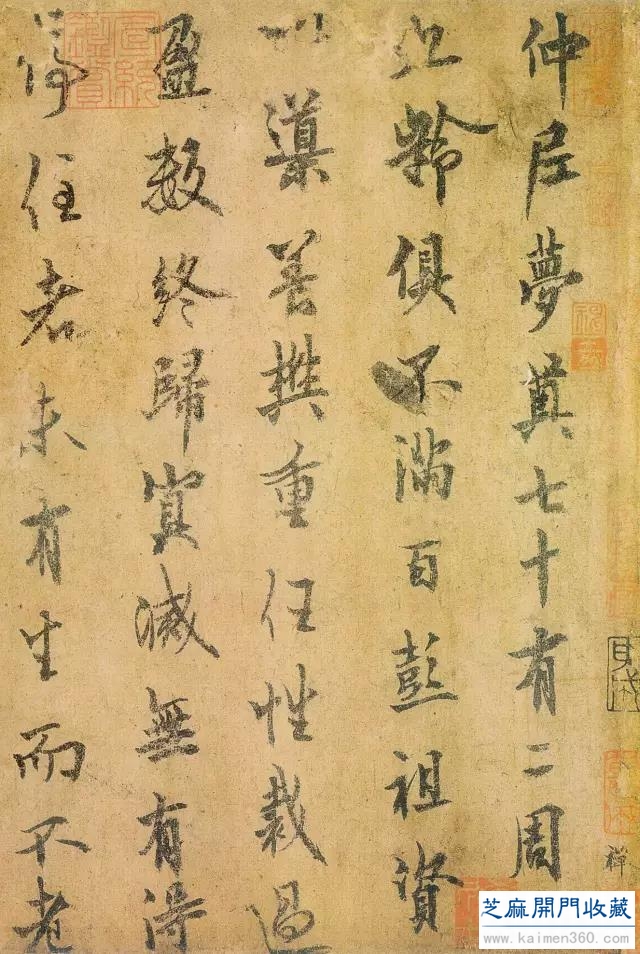 仲尼夢奠七十有二周
九齡俱不滿百彭祖資
以導養樊重任性裁過
盈數終歸冥滅無有得
停住者未有生而不老
宣統鑑賞
芝麻開門收藏
www.kaimen360.com